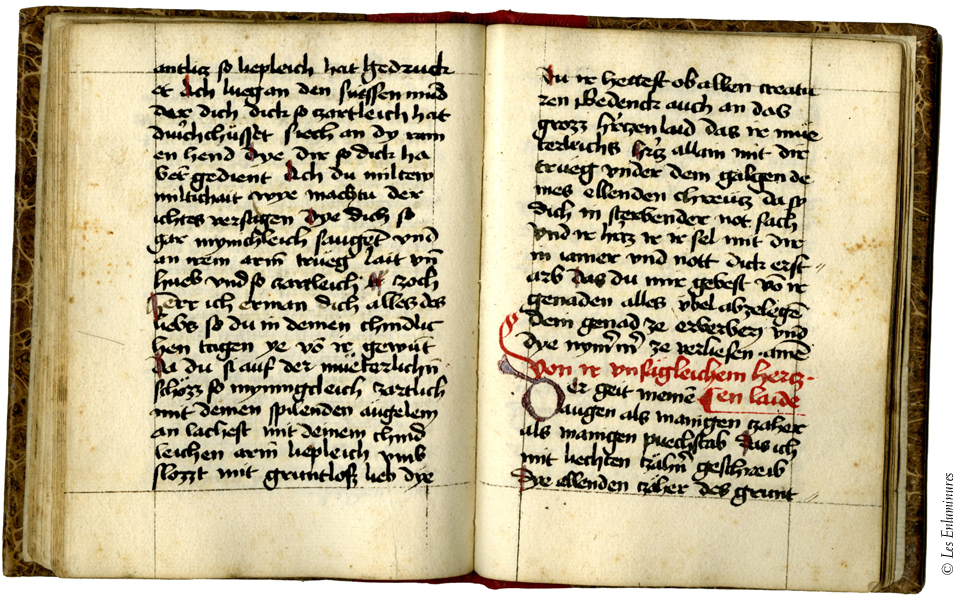 antlicz so liepleich hat gedruck
et Ach lueg an den suessen mund
Der dich dick so zartleich hat
durchchüsset siech an dy rain
en hend Dye dir so dick ha
ben gedient Ach du milten
miltichait wye machtu der
ichtes versagen Dye dich so
gar mynichleich sauget vnd
an irem arm trueg lait vn
hueb vnd so zartleich zoch
herr ich erman dich alles des
liebs so du in deinen chindlic
hen tagen ye von ir gewüt
Da du si auf der müeterlichn
schözz so mynnigcleich zartlich
mit deinen spilenden äugelein
an lachest mit deinem chind
leichen arm liepleich vmb
slozzt mit gruntloser lieb dye
du ir hettest ob allen creatu
ren Bedenck auch an das
grozz herczen laid das ir müe
terleichs hercz allain mit dir
trueg vnder dem galgen de
ines ellenden chreucz da sy
dich in sterbender not sach
vnd ir hercz ir ir sel mit dir
in iamer vnd nott dick erst
arb Das du mir gebest von ir
genaden alles vbel abzelegen
dein genad ze erberben vnd
dye nymermer ze verliesen amen
Von ir vnsägleichem hercz-
en laide
Wer geit meinen
augen als manigen zäher
als manigen puechstab Das ich
mit liechten zähern geschreib
Dye ellenden zäher des grunt
© Les Enluminures